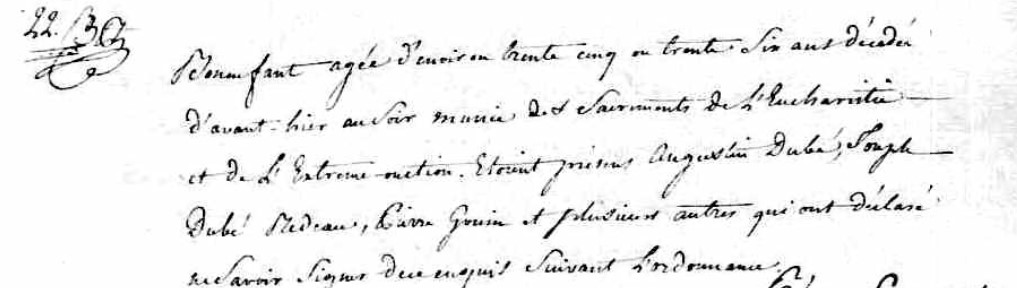 22.
Bonenfant agée d'environ trente cinq ou trente Six ans décédée
d'avant-hier au Soir munie des Sacrements de L'Eucharistie
et de L'Extreme-onction. Etoient présens Augustin Dubé, Joseph
Dubé, Pierre Gouin et plusieurs autres qui ont déclaré
ne Savoir Signer de ce enquis Suivant L'ordonnance.